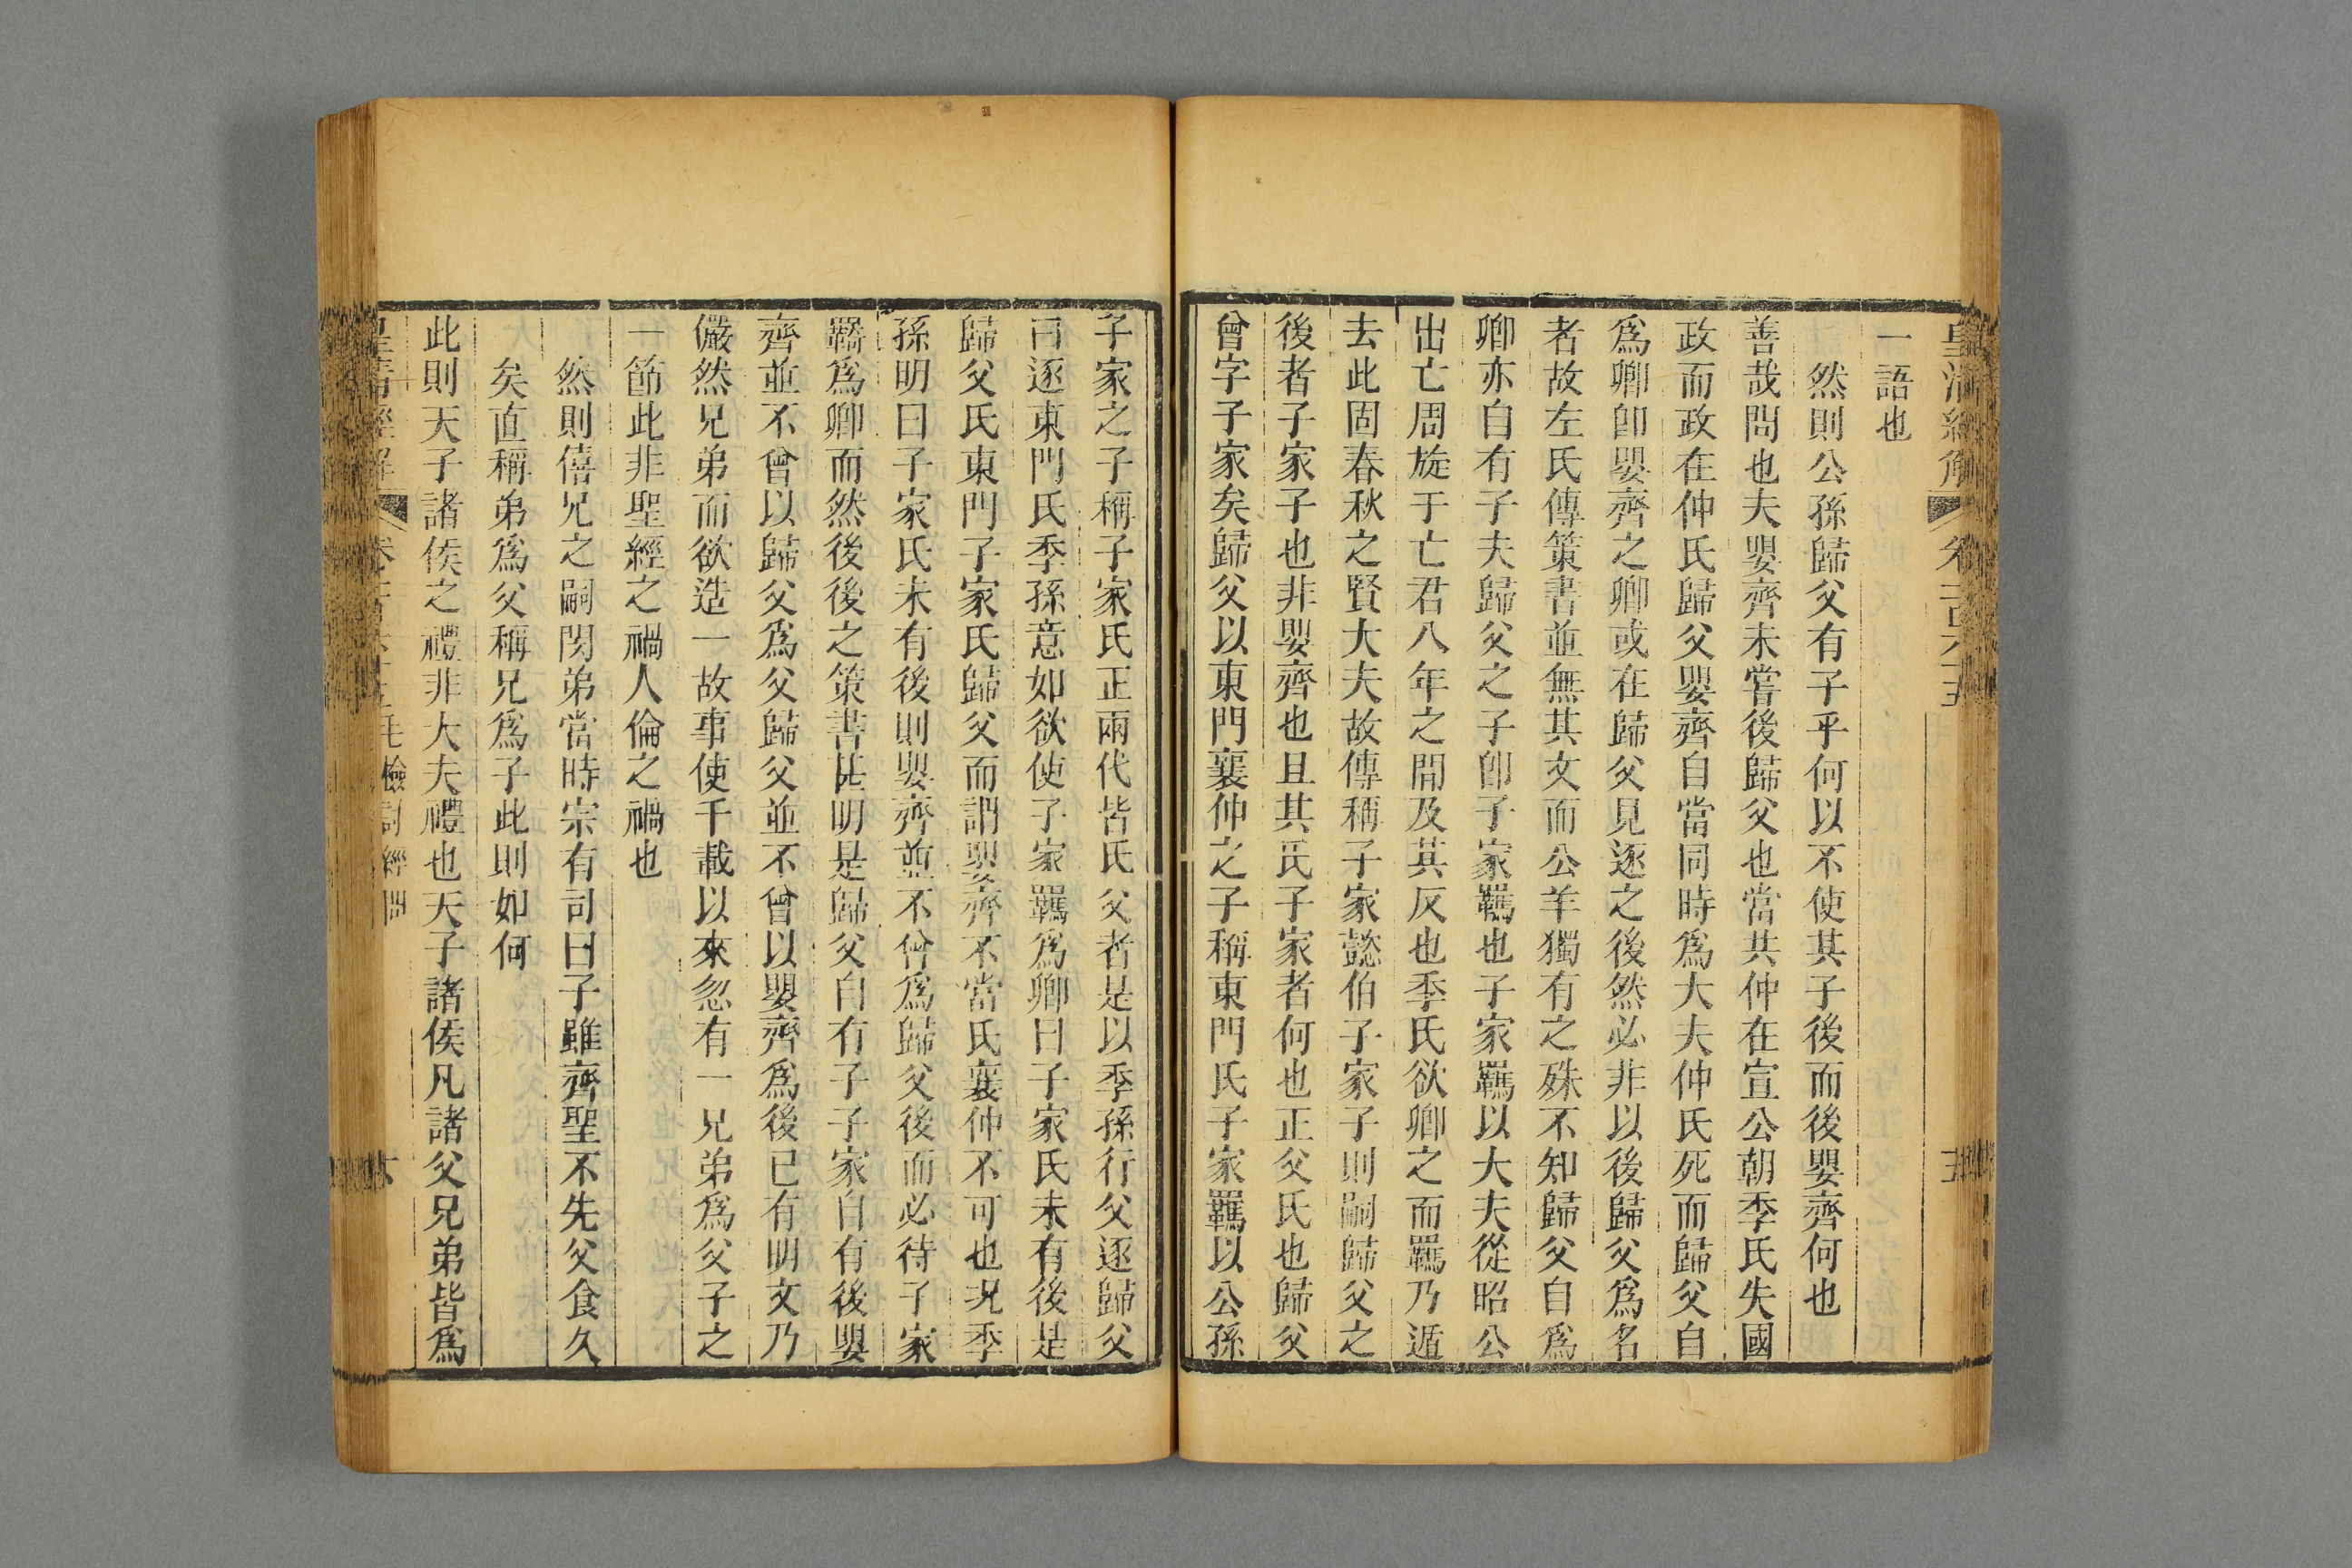 皇清經解
一語也
然則公孫歸父有子乎何以不使其子後而後嬰齊何也
善哉問也夫嬰齊未嘗後歸父也當共仲在宣公朝季氏失國
政而政在仲氏歸父嬰齊自當同時爲大夫仲氏死而歸父自
爲卿卽嬰齊之卿或在歸父見逐之後然必非以後歸父爲名
者故左氏傳策書並無其文而公羊獨有之殊不知歸父自爲
卿亦自有子夫歸父之子卽子家羈也子家羈以大夫從昭公
出亡周旋于亡君八年之閒及其反也季氏欲卿之而羈乃遁
去此固春秋之賢大夫故傳稱子家懿伯子家子則嗣歸父之
後者子家子也非嬰齊也且其氏子家者何也正父氏也歸父
曾字子家矣歸父以東門襄仲之子稱東門氏子家羈以公孫
子家之子稱子家氏正兩代皆氏父者是以季孫行父逐歸父
曰逐東門氏季孫意如欲使子家羈爲卿曰子家氏未有後是
歸父氏東門子家氏歸父而謂嬰齊不當氏襄仲不可也况季
孫明曰子家氏未有後則嬰齊並不曾爲歸父後而必待子家
羈爲卿而然後後之策書甚明是歸父自有子子家自有後嬰
齊並不曾以歸父爲父歸父並不曾以嬰齊爲後已有明文乃
儼然兄弟而欲造一故事使千載以來忽有一兄弟爲父子之
一節此非聖經之禍人倫之禍也
然則僖兄之嗣閔弟當時宗有司曰子雖齊聖不先父食久
矣直稱弟爲父稱兄爲子此則如何
此則天子諸侯之禮非大夫禮也天子諸侯凡諸父兄弟皆爲
皇清經解
檢討經問